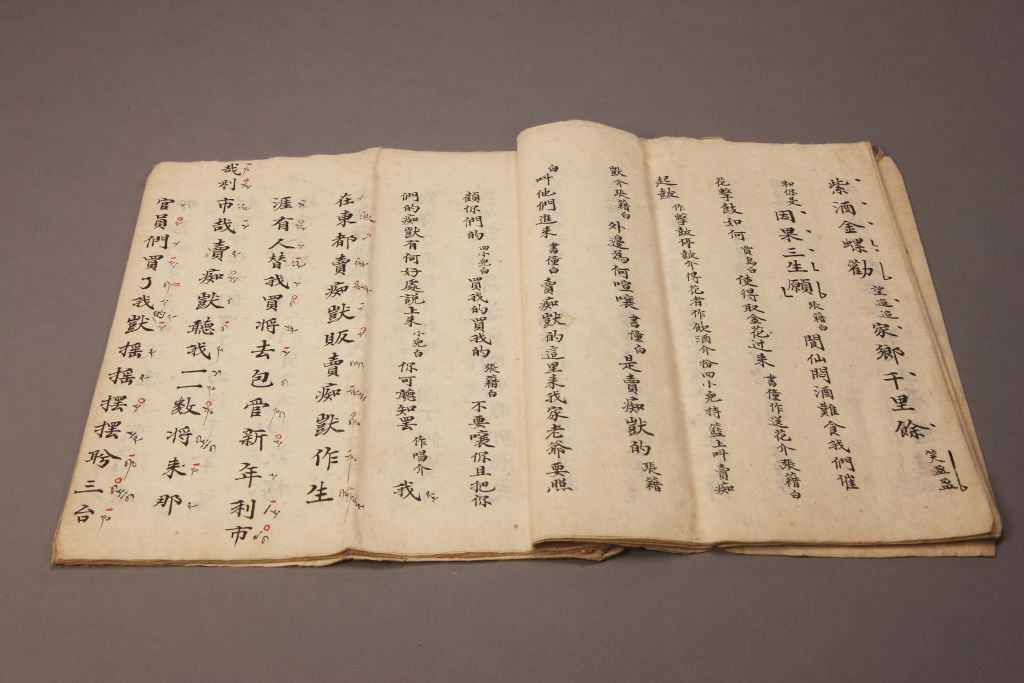 紫酒金螺勸望迢迢家鄉千里餘笑盈盈
和你是因果三生願張籍白閒仙悶酒難食我們催
花擊鼓如何賈島白使得取金花过来書僮作送花介張籍白
起鼓作擊鼓停鼓介得花者作飲酒介扮四小兔持籃上叫賣痴
獃介張籍白外邊為何喧嚷書僮白是賣痴獃的張籍
白叫他們進来書僮白賣痴獃的這里来我家老爷要照
顧你們的四小兔白買我的買我的張籍白不要嚷你且把你
們的痴獃有何好處說上来小兔白你可聽知罢作唱介我
在東都賣痴獃販賣痴獃作生
涯有人替我買將去包管新年利市
哉利市哉賣痴獃聽我一二数將来那
官員們買了我的獃摇摇摆摆聆三台